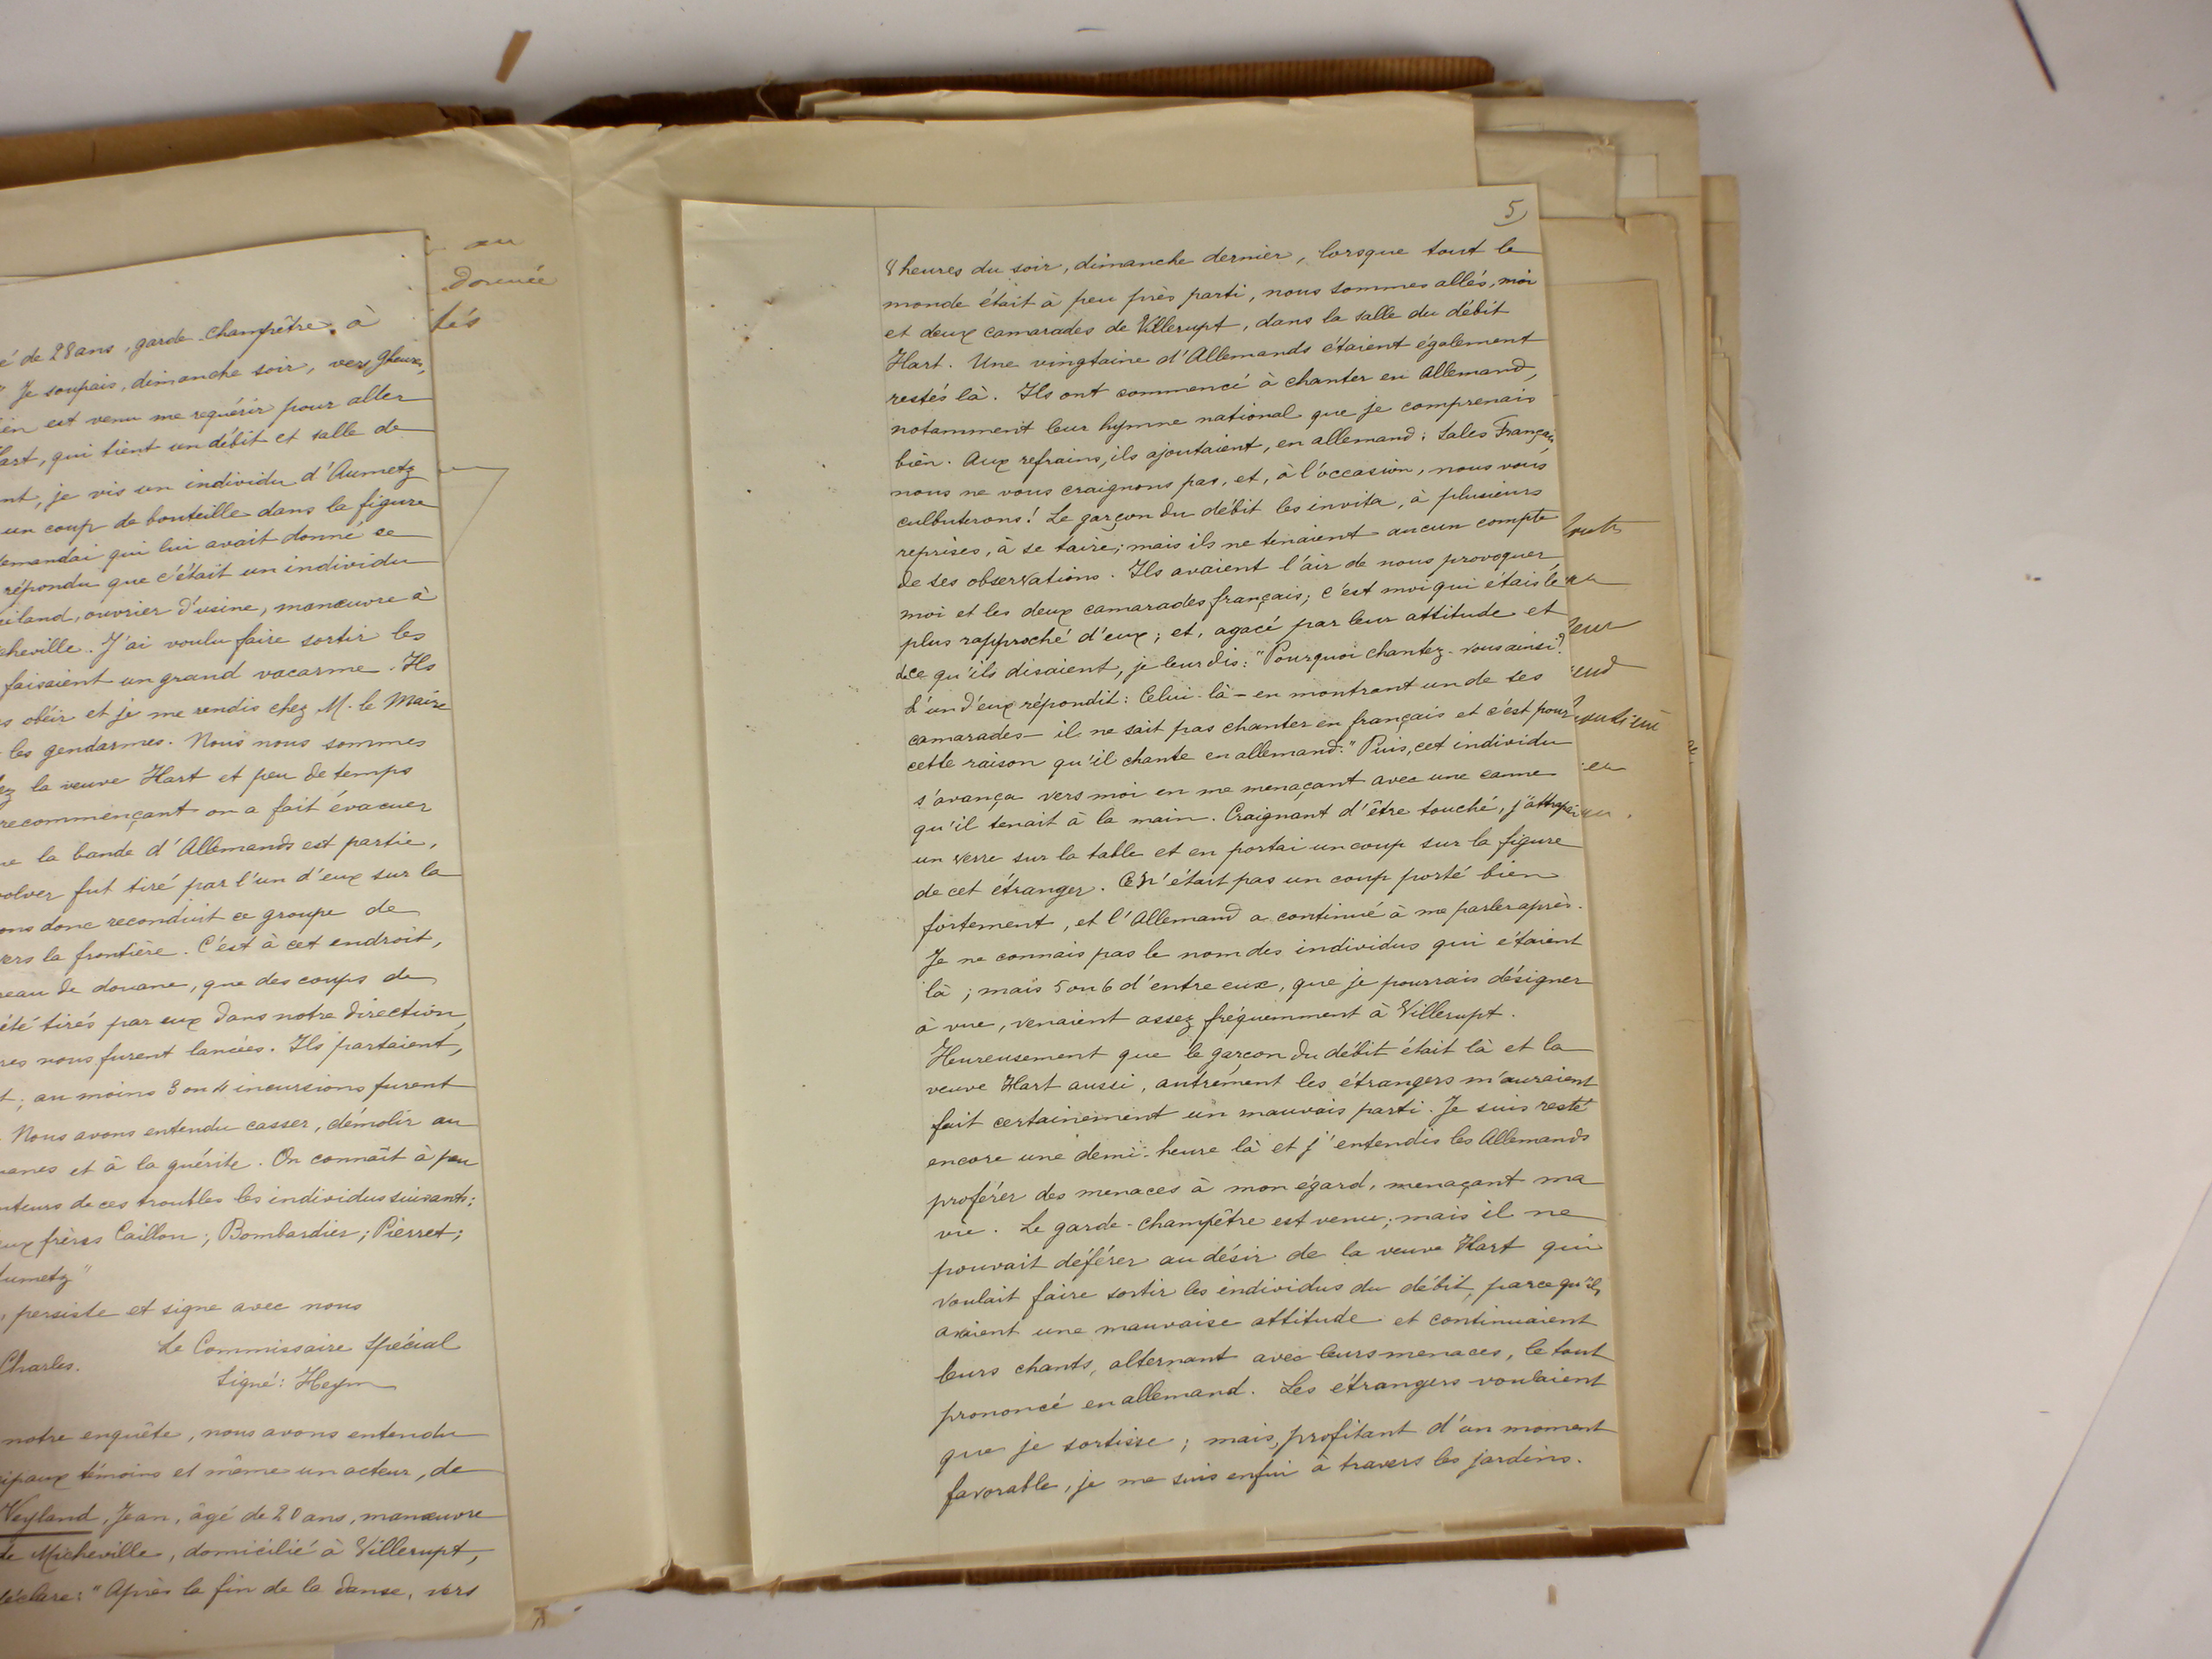 é de 28 ans, garde-champêtre à
" Je soupais, dimanche soir, vers 9 heures,
en est venu me requérir pour aller
Hart, qui tient un débit et salle de
nt, je vis un individu d'Aumetz
un coup de bouteille dans la figure
demandai qui lui avait donné ce
répondu que c'était un individu
eiland, ouvrier d'usine, manœuvre à
cheville. J'ai voulu faire sortir les
faisaient un grand vacarme. Ils
s obéir et je me rendis chez M. le Maire
les gendarmes. Nous nous sommes
ez la veuve Hart et peu de temps
recommençant on a fait évacuer
ue la bande d'Allemands est partie,
volver fut tiré par l'un d'eux sur la
ons donc reconduit ce groupe de
vers la frontière. C'est à cet endroit,
reau de douane, que des coups de
été tirés par eux dans notre direction,
res nous furent lancées. Ils partaient,
t; au moins 3 ou 4 incursions furent
Nous avons entendu casser, démolir au
uanes et à la guérite. On connaît à peu
uteurs de ces troubles les individus suivants:
eux frères Caillon; Bombardier; Pierret;
Aumetz"
, persiste et signe avec nous
Le Commissaire spécial
Charles.
Signé: Heym
notre enquête, nous avons entendu
cipaux témoins et même un acteur, de
Weyland, Jean, âgé de 20 ans, manœuvre
de Micheville, domicilié à Villerupt,
déclare: "Après la fin de la danse, vers
au
donnée
tés
5
8 heures du soir, dimanche dernier, lorsque tout le
monde était à peu près parti, nous sommes allés, moi
et deux camarades de Villerupt, dans la salle du débit
Hart. Une vingtaine d'Allemands étaient également
restés là. Ils ont commencé à chanter en Allemand,
notamment leur hymne national que je comprenais
bien. Aux refrains, ils ajoutaient, en allemand: Sales Français,
nous ne vous craignons pas, et, à l'occasion, nous vous
culbuterons! Le garçon du débit les invita, à plusieurs
reprises, à se taire; mais ils ne tenaient aucun compte
de ses observations. Ils avaient l'air de nous provoquer,
moi et les deux camarades français; c'est moi qui étais le
plus rapproché d'eux; et, agacé par leur attitude et
de ce qu'ils disaient, je leur dis: "Pourquoi chantez-vous ainsi?
L'un d'eux répondit: Celui-là - en montrant un de ses
camarades - il ne sait pas chanter en français et c'est pour
cette raison qu'il chante en allemand." Puis, cet individu
s'avança vers moi en me menaçant avec une canne
qu'il tenait à la main. Craignant d'être touché, j'attrapai
un verre sur la table et en portai un coup sur la figure
de cet étranger. Ce n'était pas un coup porté bien
fortement, et l'Allemand a continué à me parler après.
Je ne connais pas le nom des individus qui étaient
là; mais 5 ou 6 d'entre eux, que je pourrais désigner
à vue, venaient assez fréquemment à Villerupt.
Heureusement que le garçon du débit était là et la
veuve Hart aussi, autrement les étrangers m'auraient
fait certainement un mauvais parti. Je suis resté
encore une demi-heure là et j'entendis les Allemands
proférer des menaces à mon égard, menaçant ma
vie. Le garde-champêtre est venu; mais il ne
pouvait déférer au désir de la veuve Hart qui
voulait faire sortir les individus du débit, parce qu'ils
avaient une mauvaise attitude et continuaient
leurs chants, alternant avec leurs menaces, le tout
prononcé en allemand. Les étrangers voulaient
que je sortisse; mais, profitant d'un moment
favorable, je me suis enfui à travers les jardins.